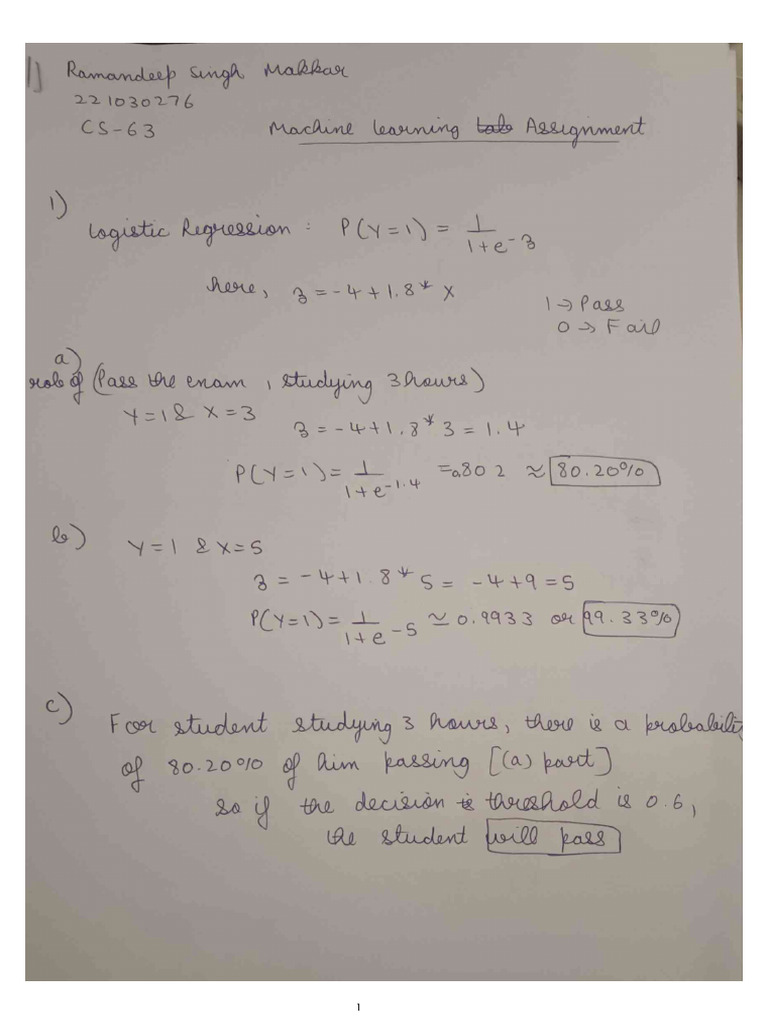 1)
Ramandeep Singh Makkar
221030276
CS-63
Machine Learning Assignment
1)
Logistic Regression : P(Y=1) = 1/(1+e^-z)
here, z = -4+1.8* X
1 → Pass
0 → Fail
a)
rob of (Pass the exam, studying 3 hours)
Y=1 & X=3
z = -4+1.8*3 = 1.4
P(Y=1) = 1/(1+e^-1.4) = .802 ≈ 80.20%
b)
Y=1 & X=5
z = -4+1.8*5 = -4+9 = 5
P(Y=1) = 1/(1+e^-5) ≃ 0.9933 or 99.33%
c)
For student studying 3 hours, there is a probabilit
of 80.20% of him passing [(a) part]
so if the decision threshold is 0.6,
the student will pass
1